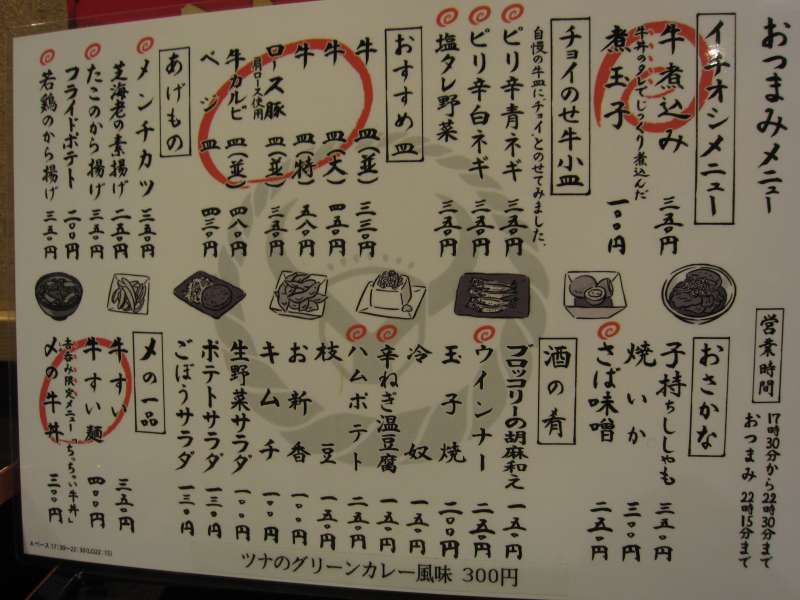 おつまみメニュー
イチオシメニュー
牛煮込み 三五〇円
牛丼のタレでじっくり煮込んだ
煮玉子 一〇〇円
チョイのせ牛小皿
自慢の牛皿にチョイとのせてみました。
ピリ辛青ネギ 三五〇円
ピリ辛白ネギ 三五〇円
塩タレ野菜 三五〇円
おすすめ皿
牛皿(並) 三三〇円
牛皿(大) 四五〇円
牛皿(特) 五八〇円
ロース豚皿(並) 三三〇円
肩ロース使用
牛カルビ皿(並) 四八〇円
ベジ皿 四三〇円
あげもの
メンチカツ 三五〇円
芝海老の素揚げ 二五〇円
たこのから揚げ 三五〇円
フライドポテト 二〇〇円
若鶏のから揚げ 三五〇円
営業時間
17時30分から22時30分まで
おつまみ 22時15分まで
おさかな
子持ちししゃも 三五〇円
焼いか 三〇〇円
さば味噌 二五〇円
酒の肴
ブロッコリーの胡麻和え 一五〇円
ウインナー 二五〇円
玉子焼 二〇〇円
冷奴 一五〇円
辛ねぎ温豆腐 二五〇円
ハムポテト 二五〇円
枝豆 一五〇円
お新香 一〇〇円
キムチ 一〇〇円
生野菜サラダ 一〇〇円
ポテトサラダ 一三〇円
ごぼうサラダ 一三〇円
〆の一品
牛すい 三五〇円
牛すい麺 四〇〇円
吉呑み限定メニュー「ちっちゃい牛丼」
〆の牛丼 三〇〇円
ツナのグリーンカレー風味 300円